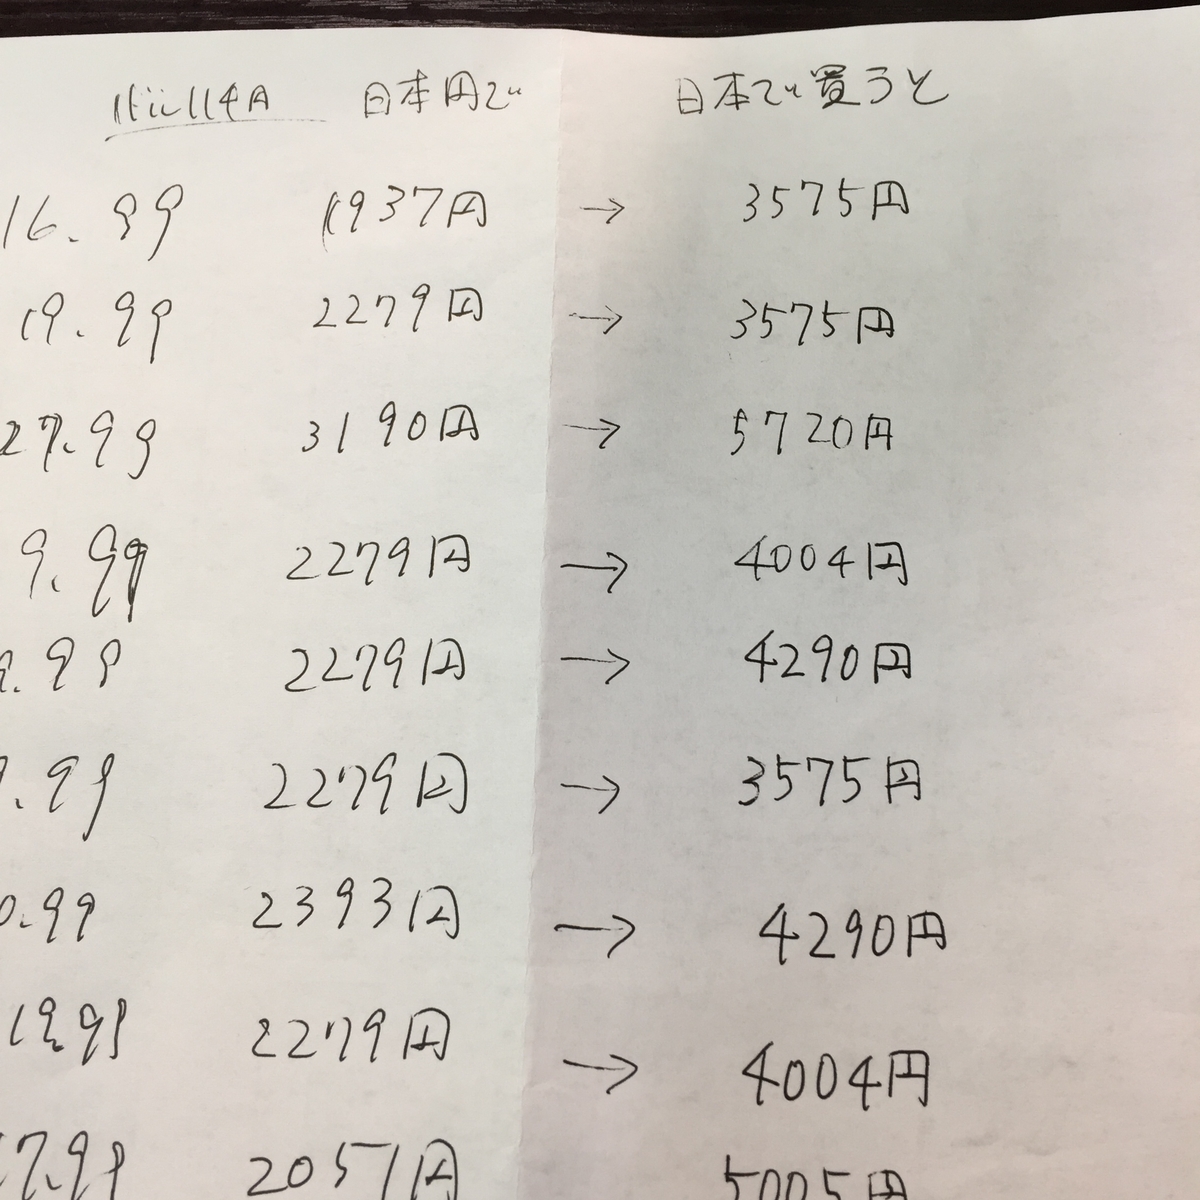 日本円で 日本で買うと
16.99 1937円 → 3575円
19.99 2279円 → 3575円
27.99 3190円 → 5720円
9.99 2279円 → 4004円
9.99 2279円 → 4290円
9.99 2279円 → 3575円
0.99 2393円 → 4290円
19.99 2279円 → 4004円
17.99 2051円 5005円